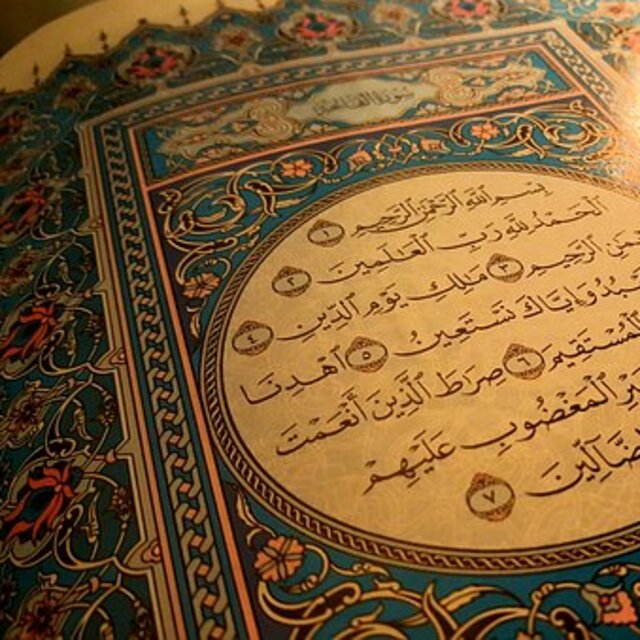 سورة الفاتحة
بسم الله الرحمن الرحيم ١
الحمد لله رب العلمين ٢
الرحيم ٣ ملك يوم الدين ٤
وإياك نستعين ٥ اهدنا
المستقيم ٦ صراط الذين أنعمت
المغضوب عليهم
٧